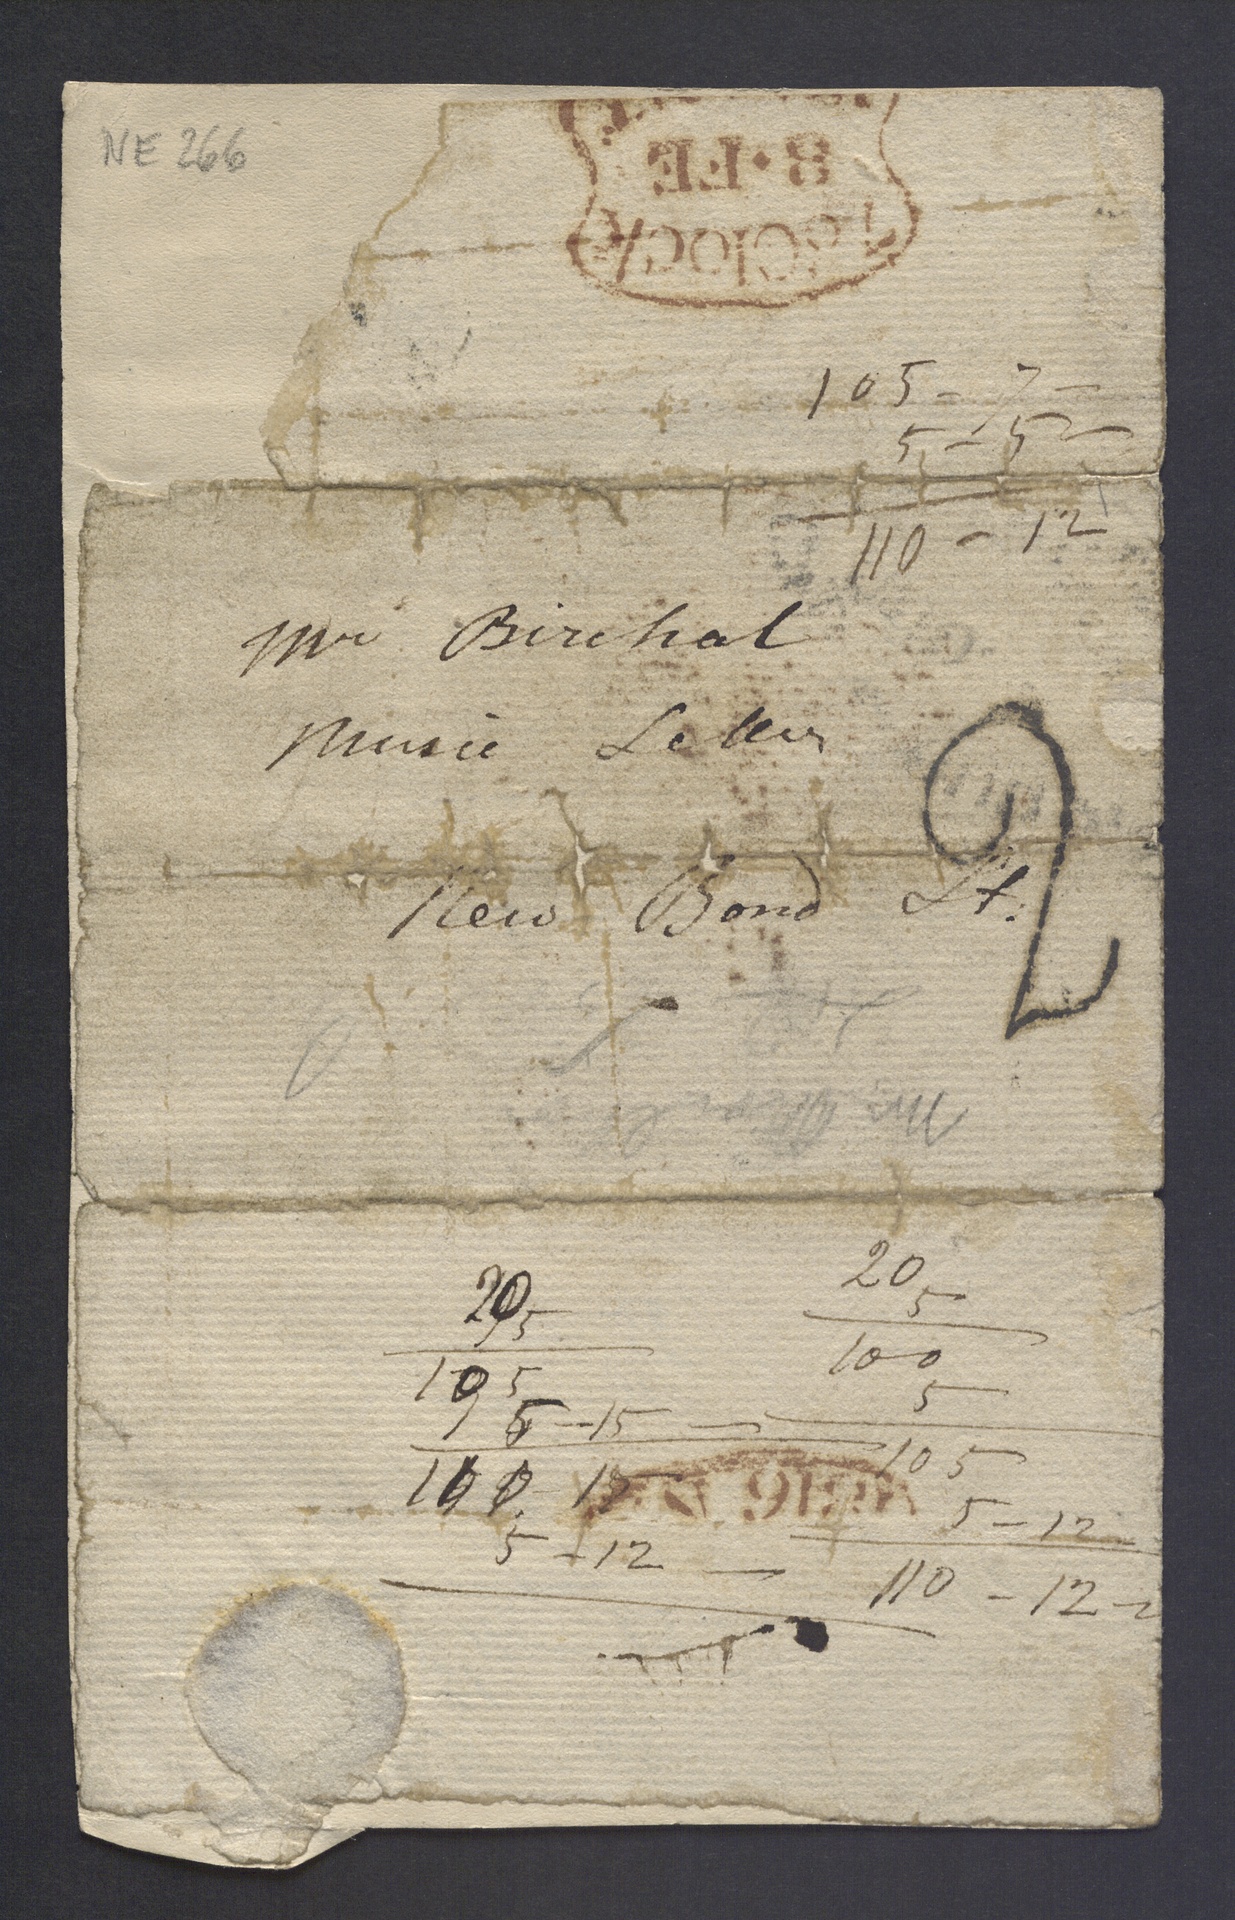 NE 266
8•FE
oClock
105 - 7 -
5 - 5 -
110 - 12
Mr Birchal
Music Seller
2
New Bond St.
Mr
20
5
20
5
105
100
5 - 15 -
5
105
5 - 12
5 - 12 -
110 - 12 -